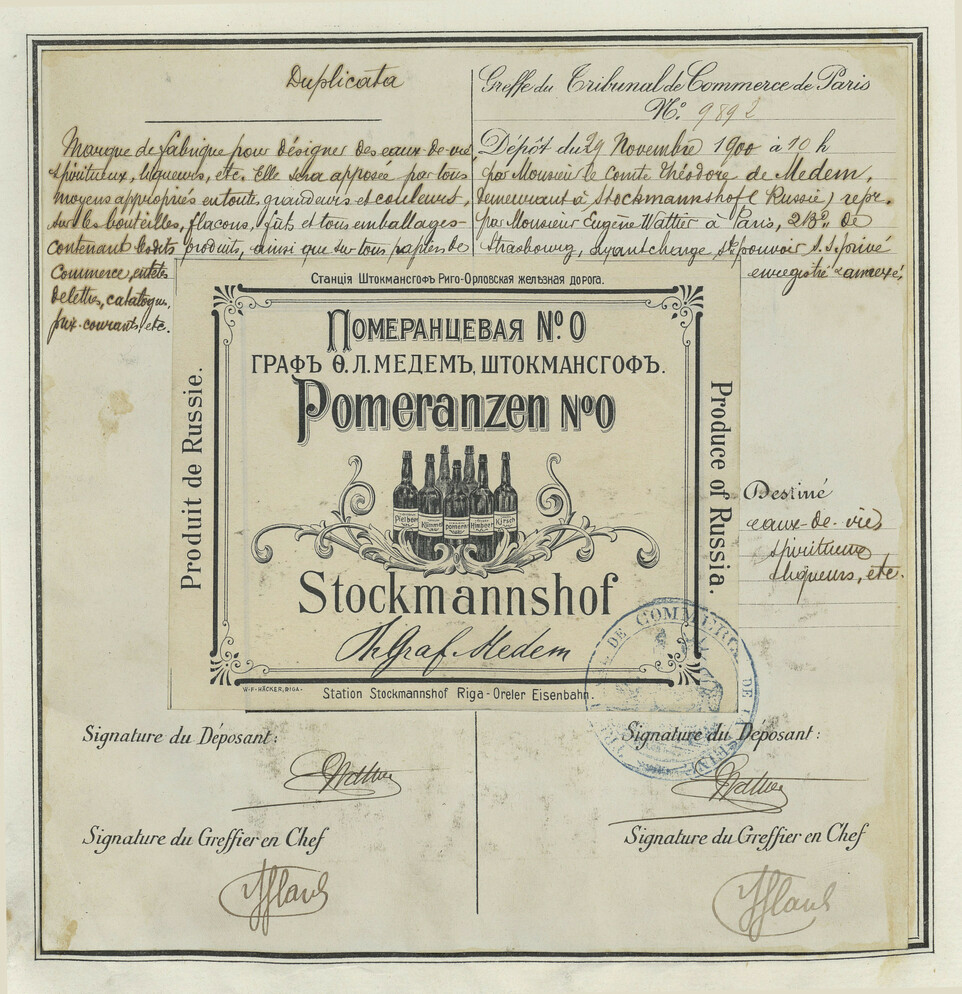 Duplicata
Marque de fabrique pour désigner des eaux-de-vie,
spiritueux, liqueurs, etc. Elle sera apposée par tous
moyens appropriés en toute grandeurs et couleurs,
sur les bouteilles, flacons, fûts et tous emballages
contenant lesdits produits, ainsi que sur tous papiers de
commerce, entête
de lettres, catalogues,
prix-courants, etc.
Greffe du Tribunal de Commerce de Paris
N.º 9892
Dépôt du 29 Novembre 1900 à 10 h
par Monsieur le Comte Théodore de Medem,
demeurant à Stockmannshof (Russie) repr.
par Monsieur Eugène Wattier à Paris, 2 Bd de
Strasbourg, ayant charge et pouvoir s.s. privé
enregistré & annexé.
Станція Штокмансгофъ Риго-Орловская желѣзная дорога.
Померанцевая №. 0
ГРАФЪ Ѳ. Л. МЕДЕМЪ, ШТОКМАНСГОФЪ.
Pomeranzen №0
Produit de Russie.
Produce of Russia.
Kümmel
Kirsch
Stockmannshof
Th Graf Medem
W·F·HÄCKER, RIGA·
Station Stockmannshof Riga-Oreler Eisenbahn.
Destiné
eaux-de-vie,
spiritueux
liqueurs, etc.
DE COMMERCE DE LA
Signature du Déposant:
Signature du Déposant:
Signature du Greffier en Chef
Signature du Greffier en Chef